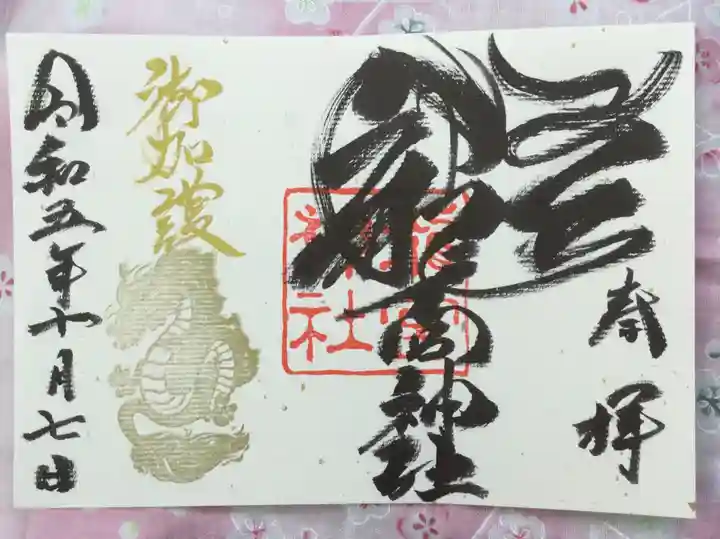 奉拝
龍宮神社
龍宮
神社
御加護
令和五年十月七日